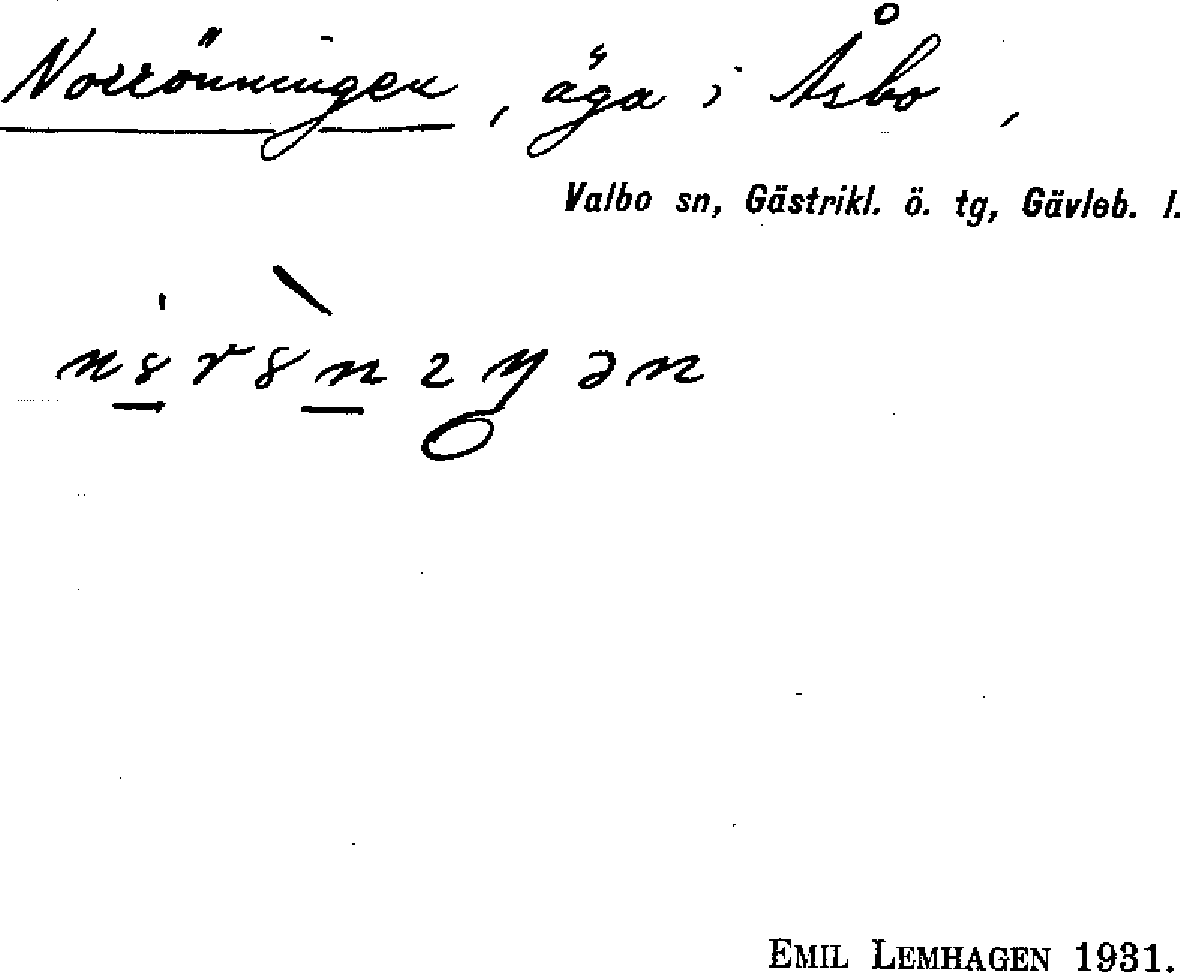 Norrönningen, äga i Åsbo,
Valbo sn, Gästrikl. ö. tg, Gävleb. l.
EMIL LEMHAGEN 1931.